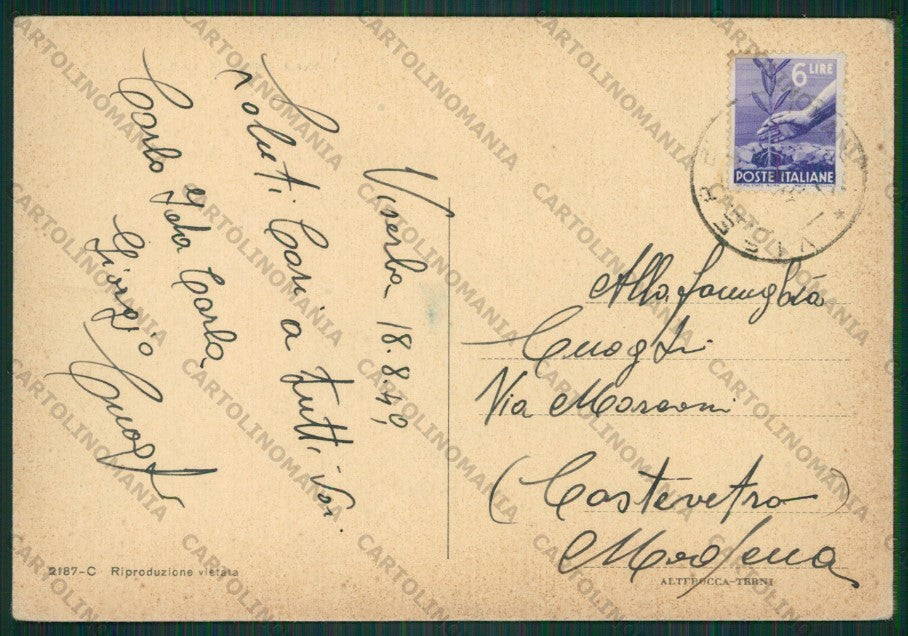 Viserba 18.8.49
Saluti Cari a tutti voi
Carlo Ida Carla
Giorgio
Cuoghi
6 LIRE
POSTE ITALIANE
VISERBA
Alla famiglia
Cuoghi
Via Marconi
(Castelvetro)
Modena
2187-C Riproduzione vietata
ALTEROCCA-TERNI
CARTOLINOMANIA